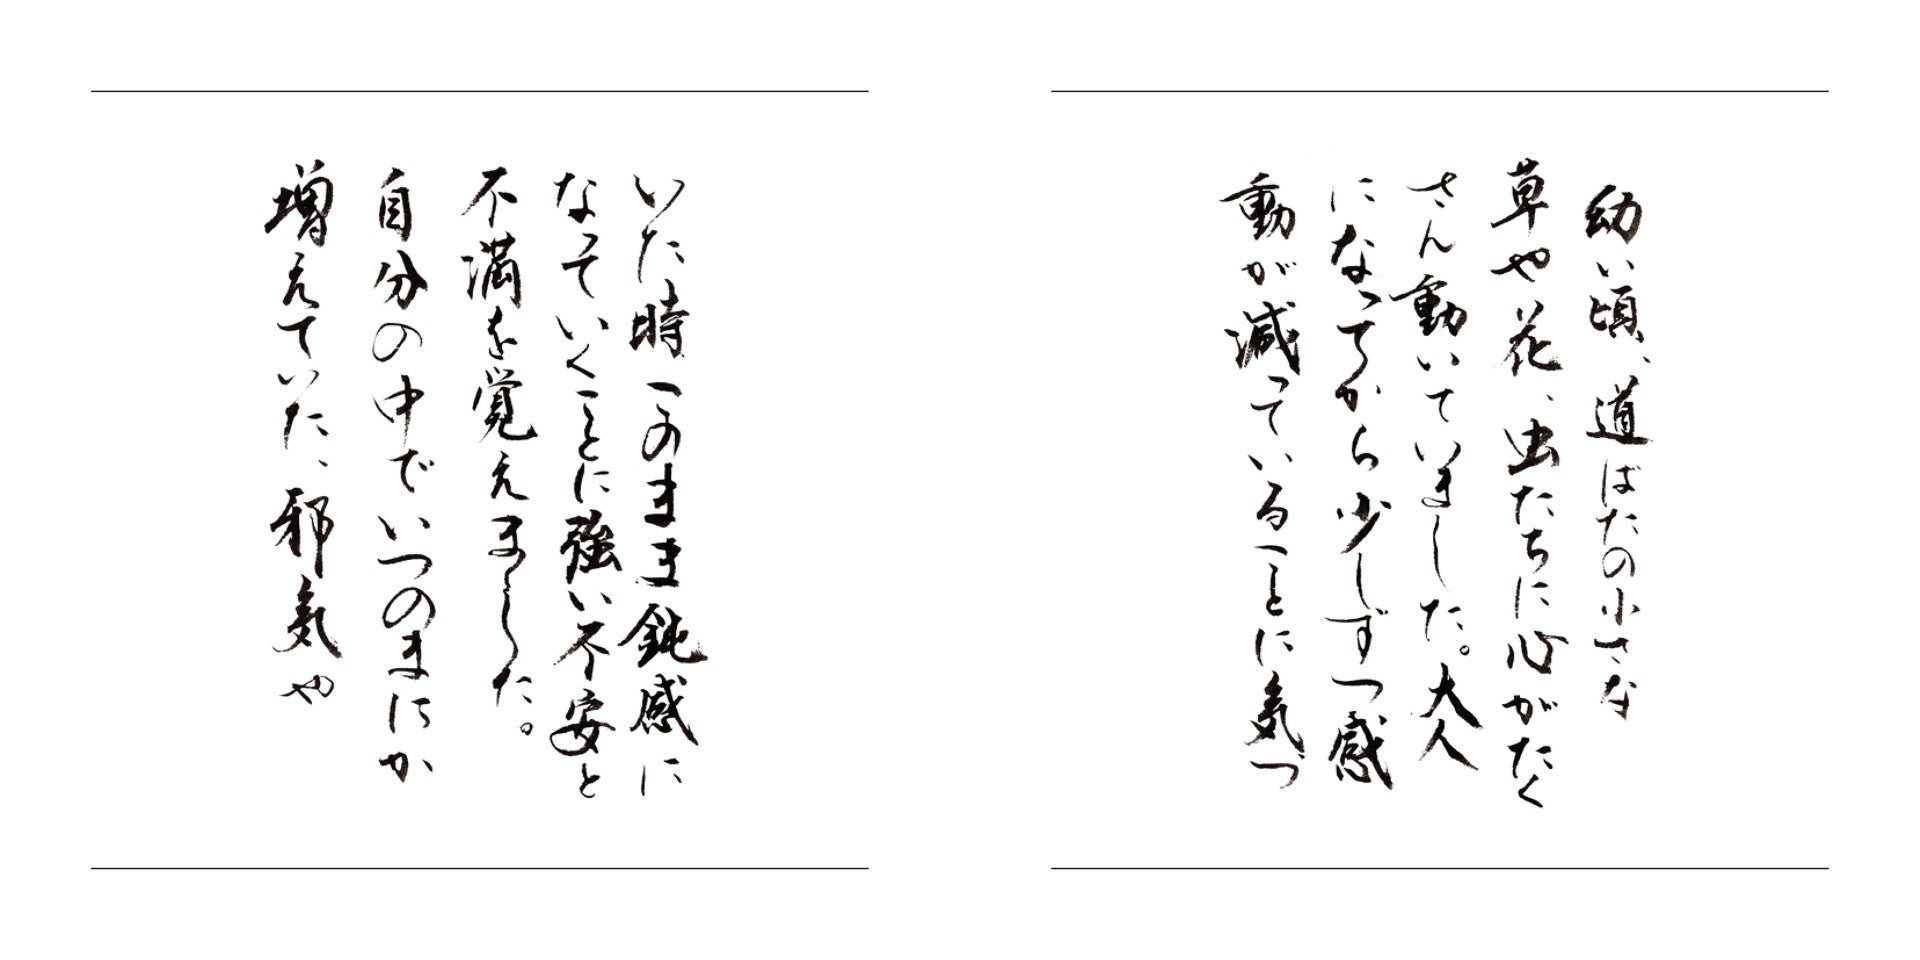 幼い頃、道ばたの小さな
草や花、虫たちに心がたく
さん動いていました。大人
になってから少しずつ感
動が減っていることに気づ
いた時このまま鈍感に
なっていくことに強い不安と
不満を覚えました。
自分の中でいつのまにか
増えていた、邪気や